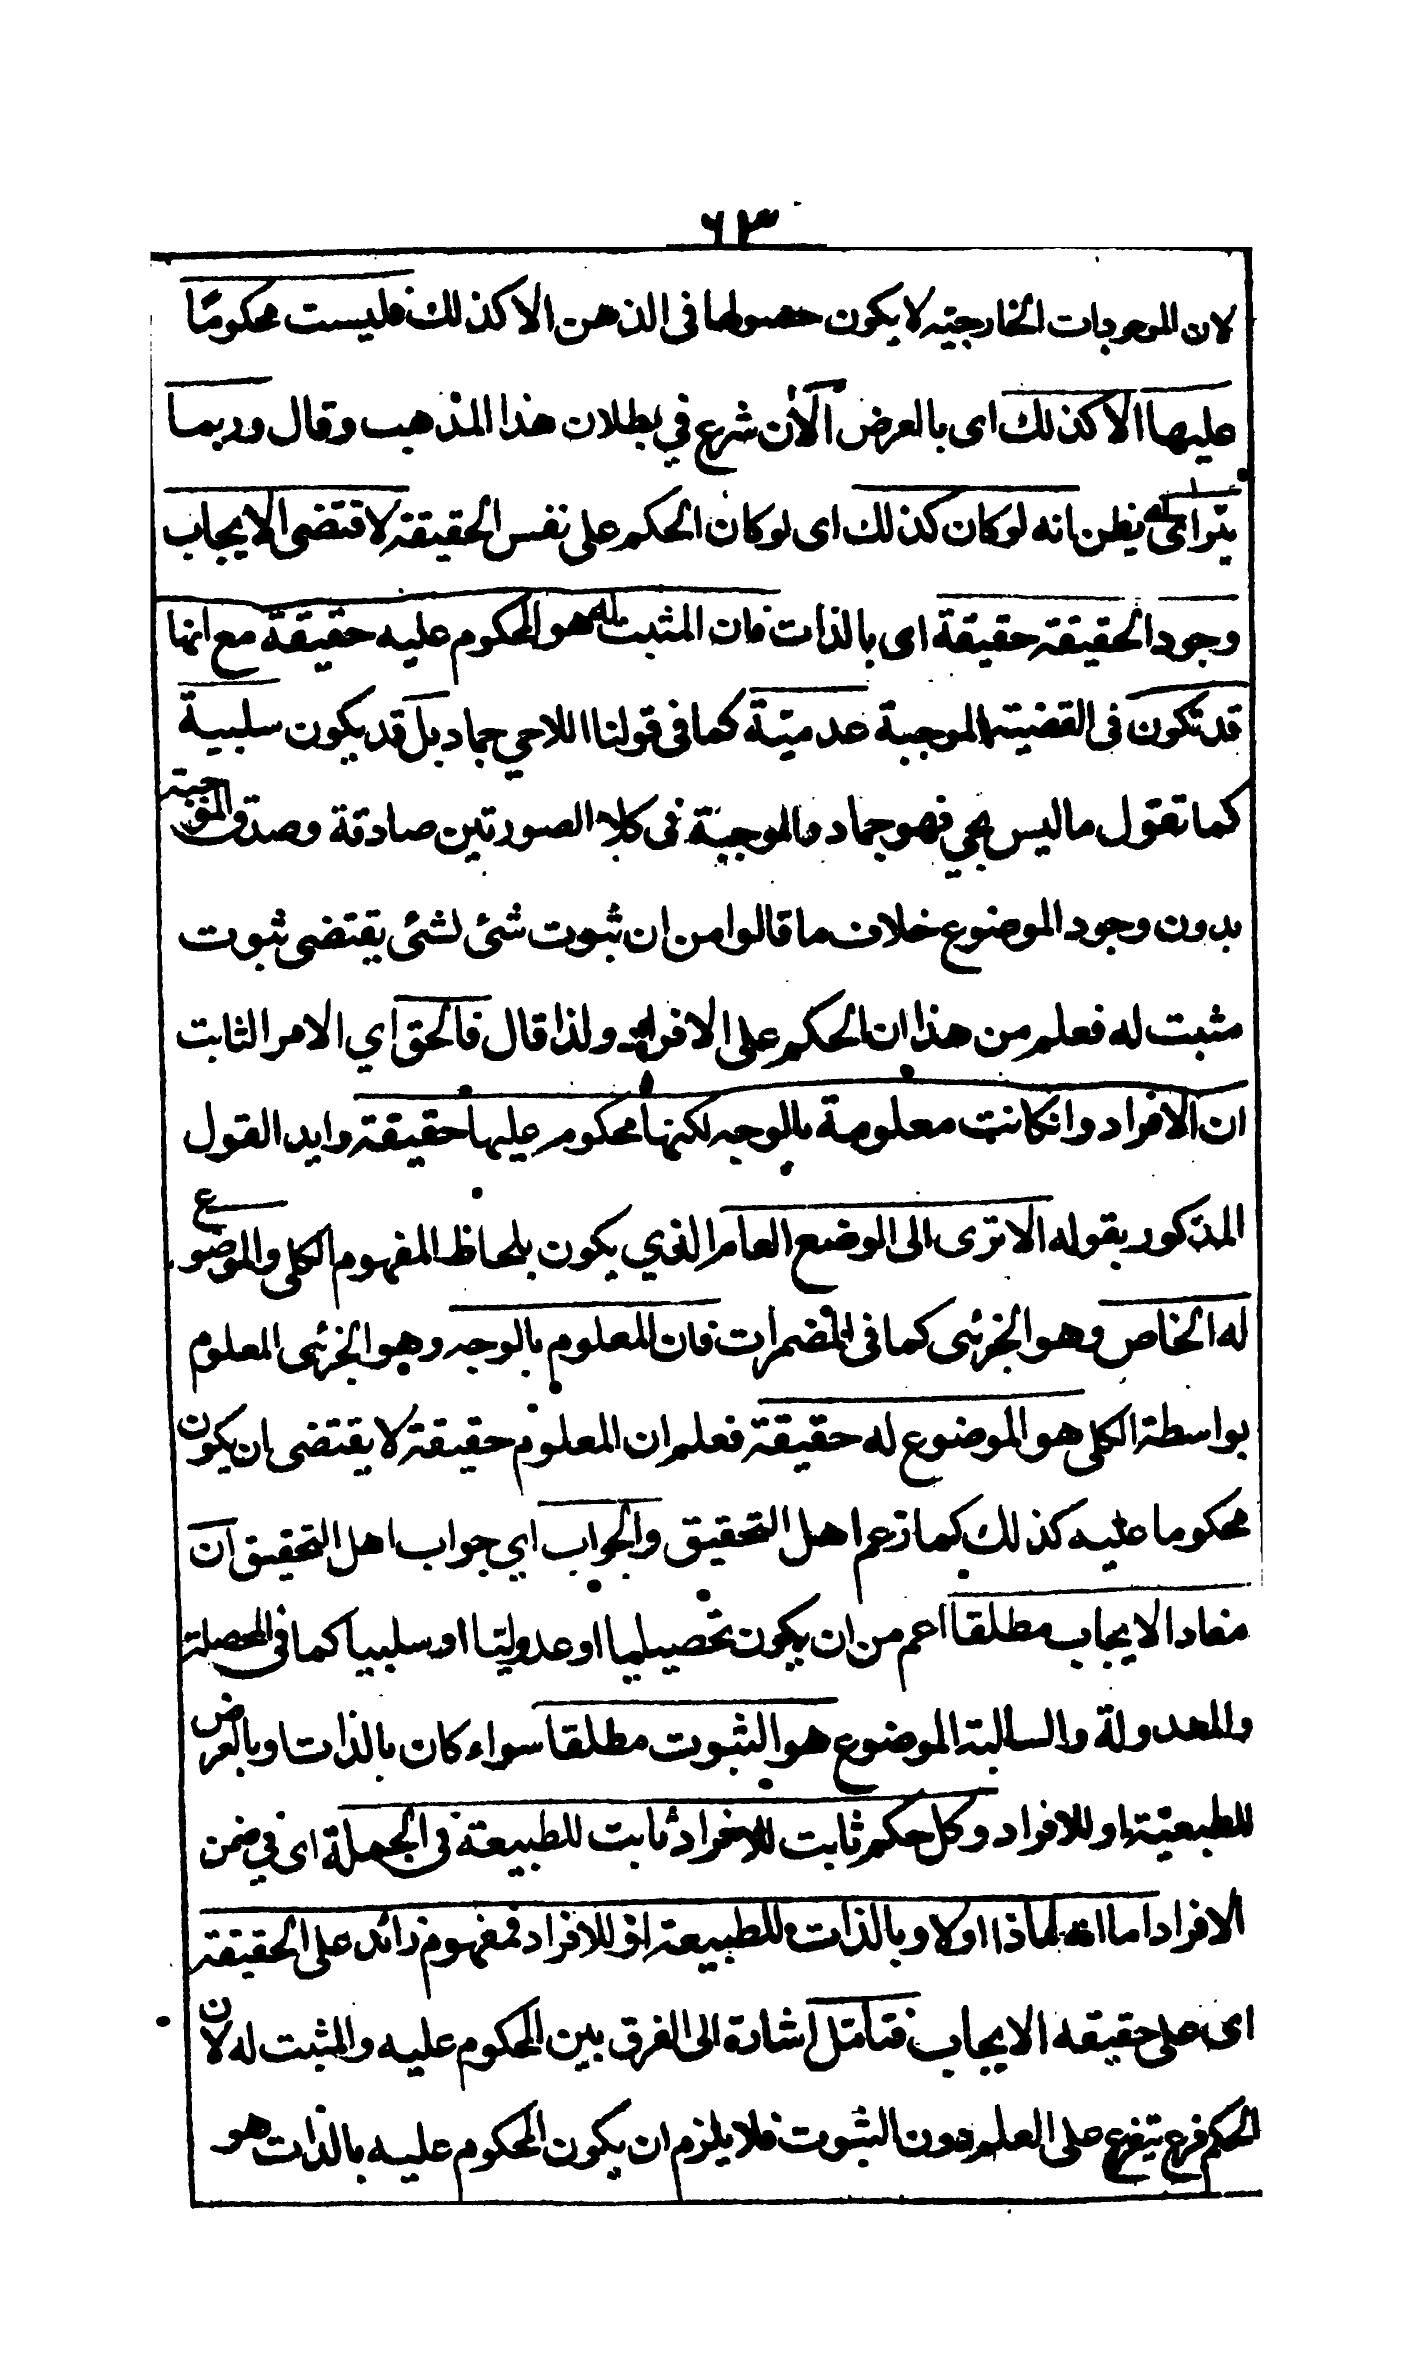 ٦٣
لان الموجودات الخارجيته لا يكون حصولها فى الذهن الا كذلك فليست محكومًا
عليها الا كذلك اى بالعرض الأن شرع في بطلان هذا المذهب وقال وربما
يترائى له يظن انه لو كان كذلك اى لو كان الحكم على نفس الحقيقة لاقتضى الايجاب
وجود الحقيقة حقيقة اى بالذات فان المثبت له هو المحكوم عليه حقيقة مع انها
قد تكون فى القضيته الموجبة عدميّة كما فى قولنا اللاحي جماد بل قد يكون سلبية
كما تقول ما ليس بحي فهو جماد والموجبة فى كلا الصورتين صادقة وصدق الموجبة
بدون وجود الموضوع خلاف ما قالوا من ان ثبوت شئ لشئ يقتضى ثبوت
مثبت له فعلم من هذا ان الحكم على الافراد ولذا قال فالحق اي الامر الثابت
ان الافراد وانكانت معلومة بالوجه لكنها محكوم عليها حقيقة وايد القول
المذكور بقوله الا ترى الى الوضع العام الذي يكون بلحاظ المفهوم الكلى والموضوع
له الخاص وهو الجزئى كما فى المضمرات فان المعلوم بالوجه وهو الجزئى المعلوم
بواسطة الكلى هو الموضوع له حقيقة فعلم ان المعلوم حقيقة لا يقتضى ان يكون
محكوما عليه كذلك كما زعم اهل التحقيق والجواب اي جواب اهل التحقيق ان
مفاد الايجاب مطلقا اعم من ان يكون تحصيليا او عدوليتا او سلبيا كما فى المحصلة
والمعدولة والسالبة الموضوع هو الثبوت مطلقا سواء كان بالذات او بالعرض
للطبعيّة او للافراد وكل حكم ثابت للافراد ثابت للطبيعة فى الجملة اى في ضمن
الافراد اما انه لماذا اولا وبالذات للطبيعة او للافراد فمفهوم زائد على الحقيقة
اى على حقيقه الايجاب فتأمل اشارة الى الفرق بين المحكوم عليه والمثبت له لان
الحكم فرع يتفرع على العلم دون الثبوت فلا يلزم ان يكون المحكوم عليه بالذات هو